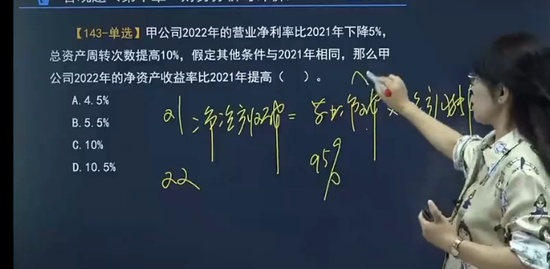 【143-单选】甲公司2022年的营业净利率比2021年下降5%，
总资产周转次数提高10%，假定其他条件与2021年相同，那么甲
公司2022年的净资产收益率比2021年提高（ ）。
A. 4.5%
B. 5.5%
C. 10%
D. 10.5%
21 净资产收益率 =
95%
22